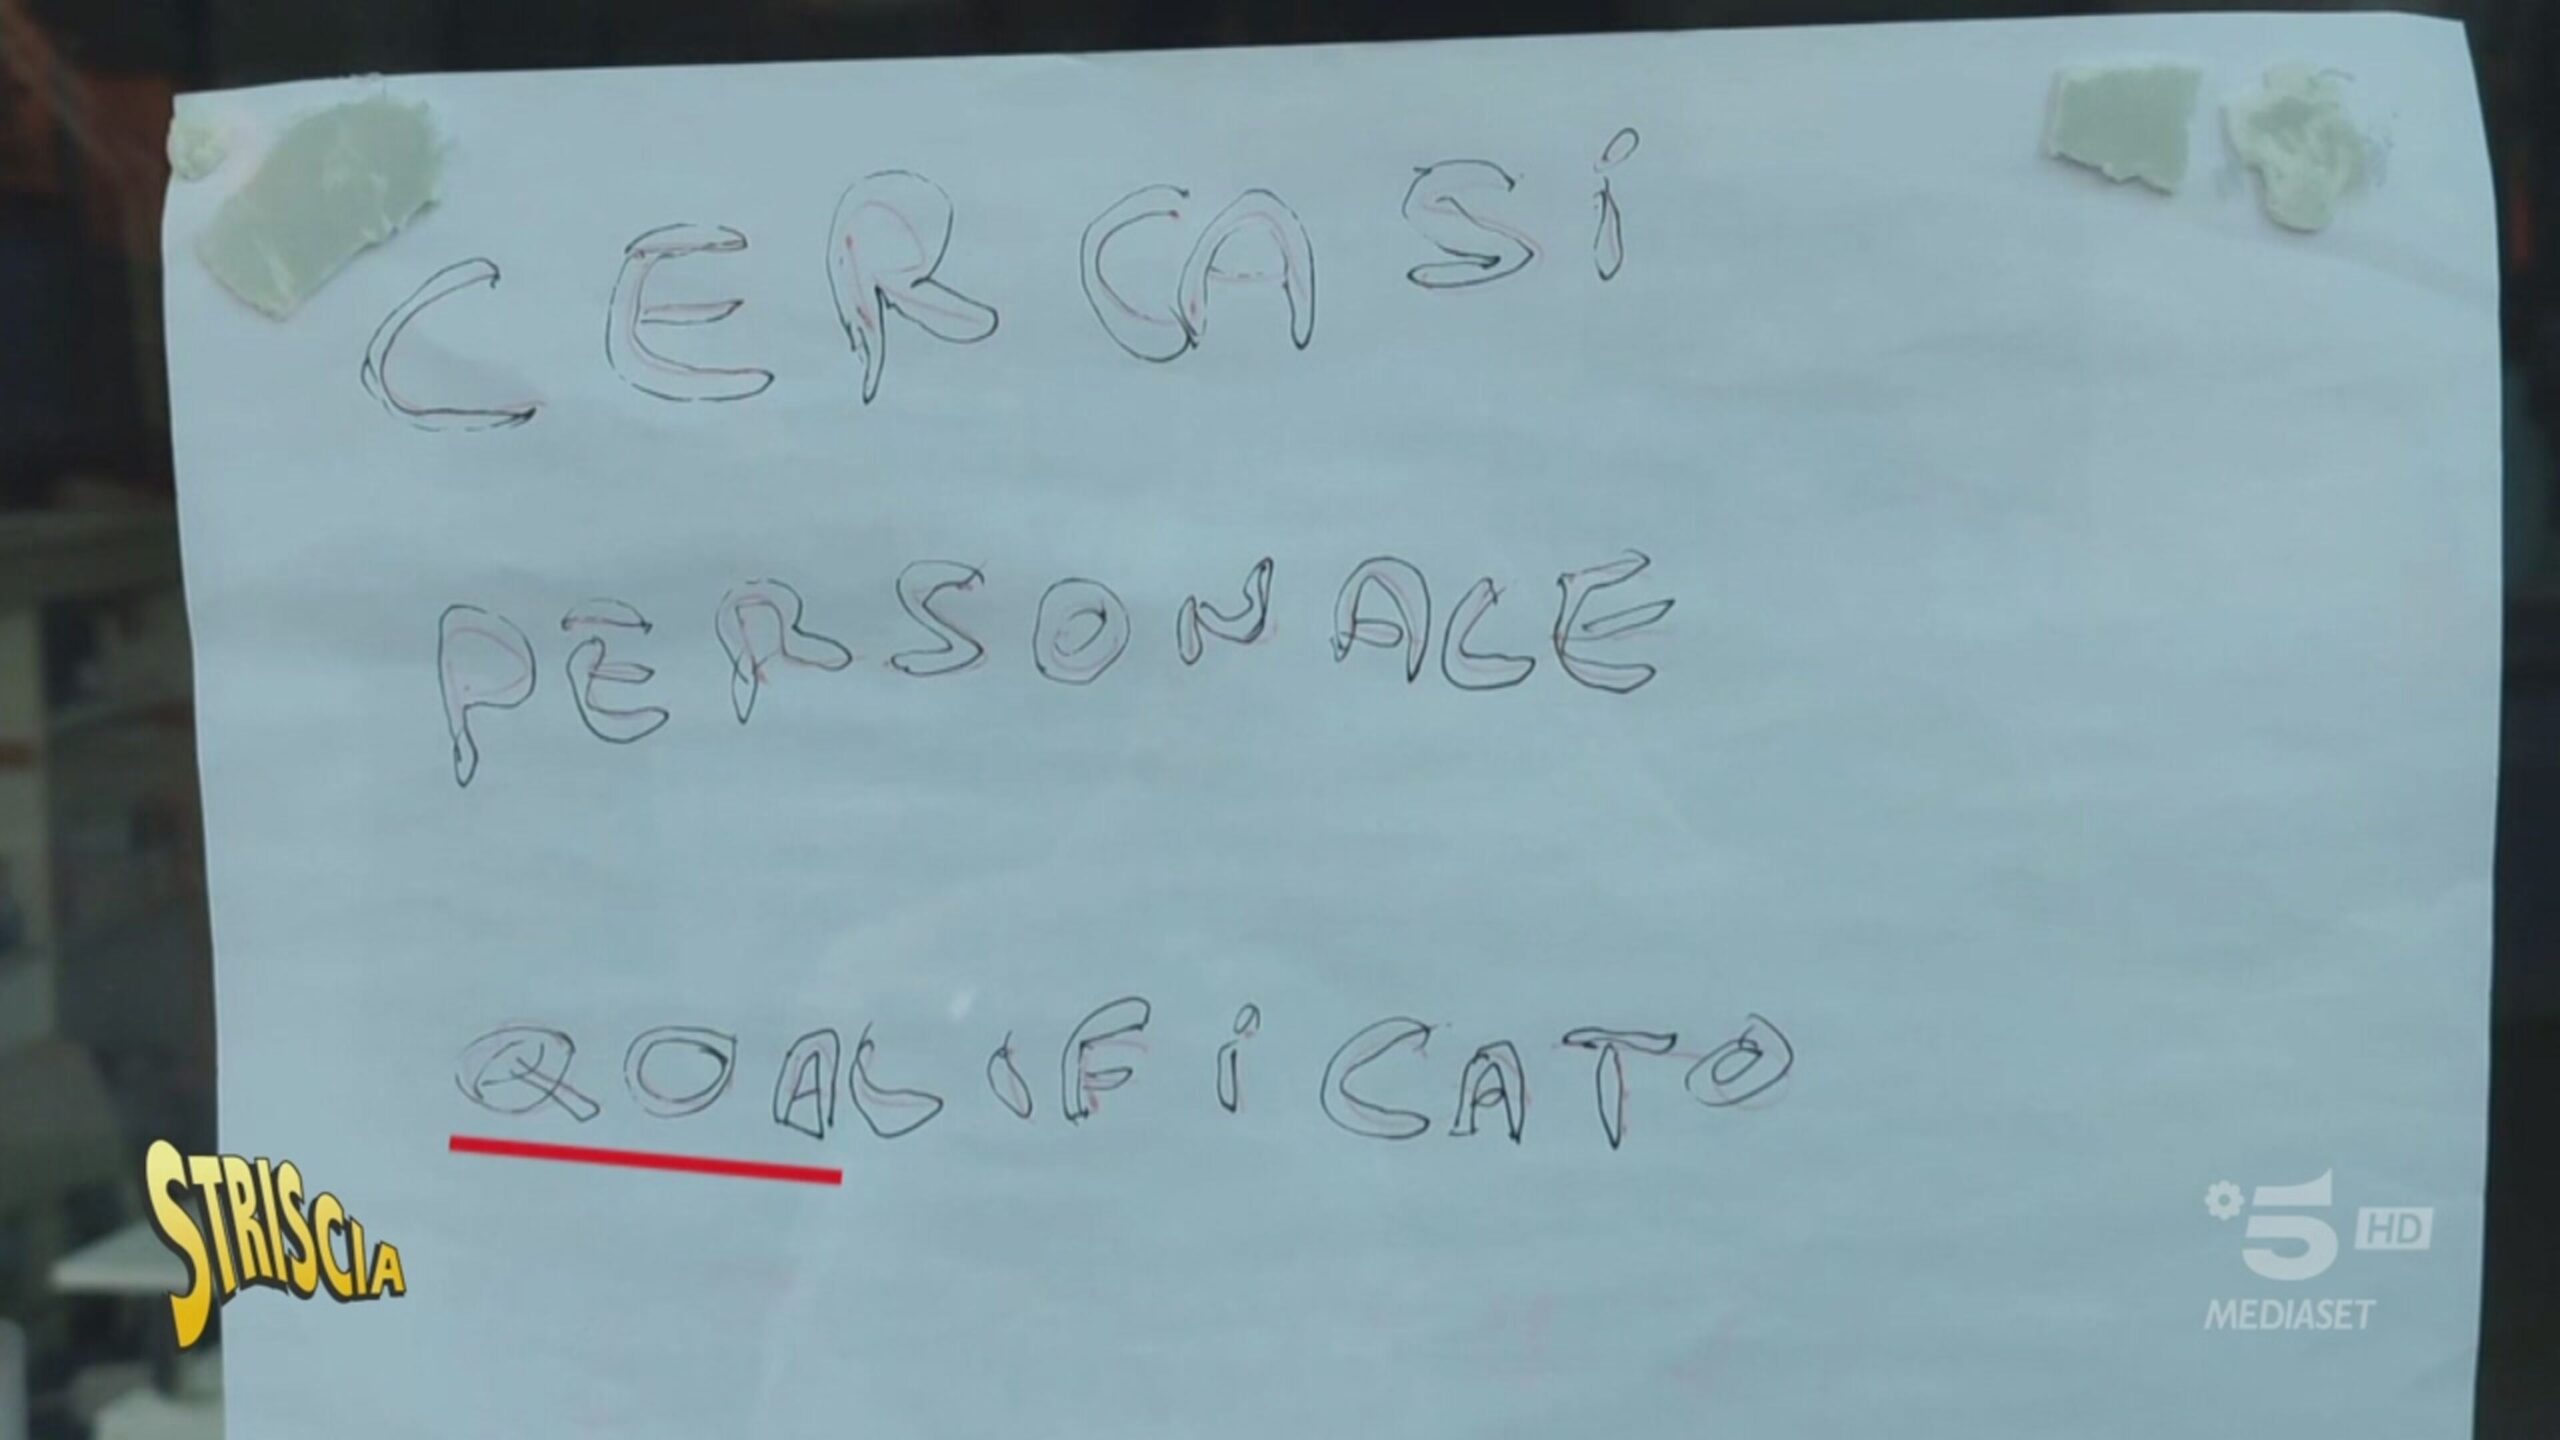 CERCASi
PERSONALE
QOALIFiCATO
STRISCIA
5 HD
MEDIASET